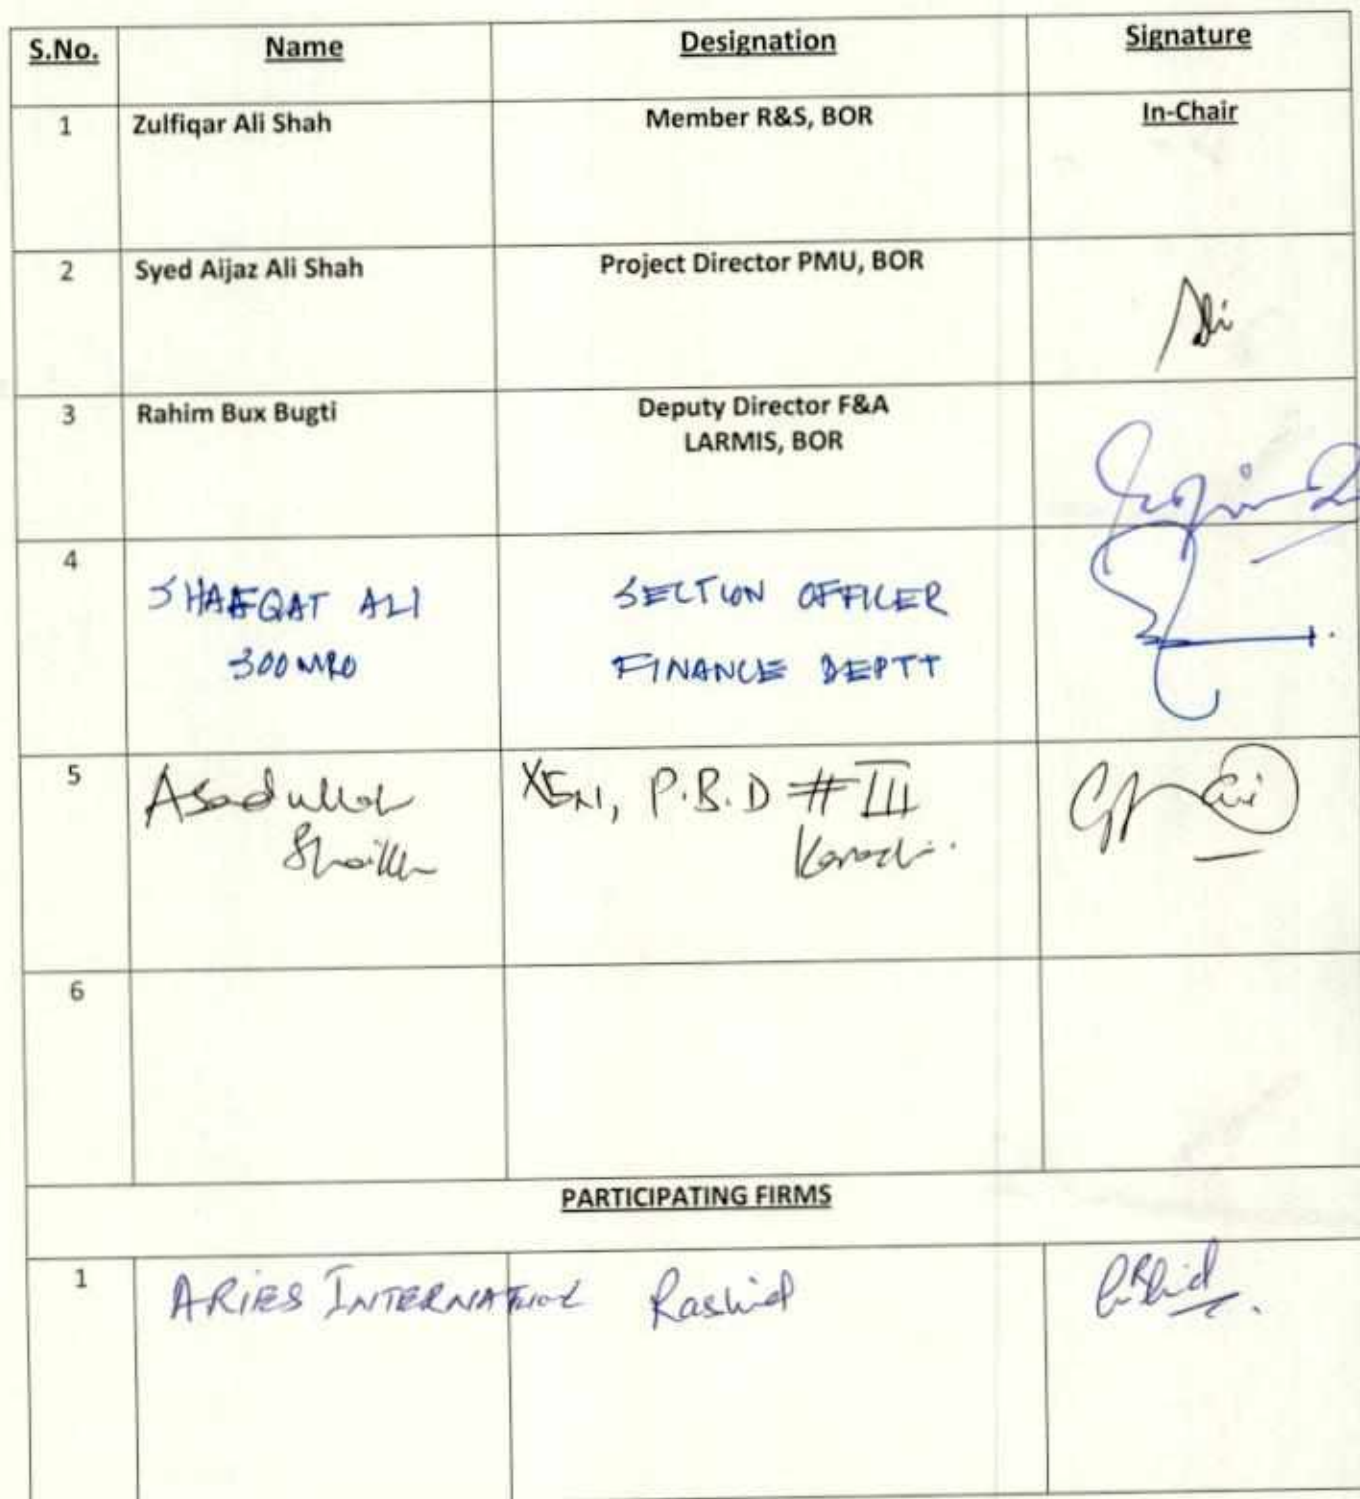 S.No. Name Designation Signature
1 Zulfiqar Ali Shah Member R&S, BOR In-Chair
2 Syed Aijaz Ali Shah Project Director PMU, BOR
3 Rahim Bux Bugti Deputy Director F&A
LARMIS, BOR
4
SHAFQAT ALI SECTION OFFICER
SOOMRO FINANCE DEPTT
5 Asadullah XEN, P.B.D # III
Shaikh Karachi.
6
PARTICIPATING FIRMS
1 ARIES INTERNATIONAL Rashid